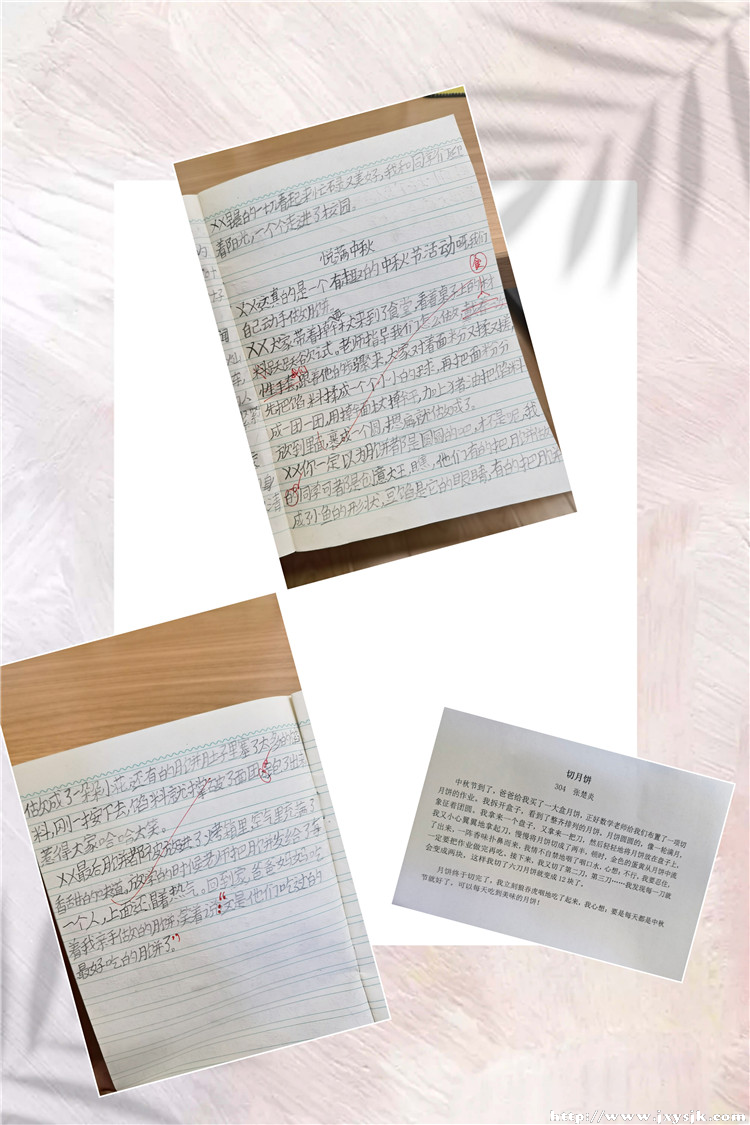 XX早晨的一切看起来
着阳光,一个个走进了校园。
悦满中秋
XX这真的是一个有趣的中秋节活动呀,我们
自己动手做月饼
XX大家带着 来到了食堂,看着桌子上的材
食
料跃跃欲试。老师指导我们怎么做
性手套,跟着他的步骤来,大家对着面粉又揉又搓,
先把馅料揉成一个个小小的球,再把面粉分
成一团一团,用擀面杖擀
放到里面,裹成一个圆, 就做成了。
XX你一定以为月饼都是圆圆的吧,才不是呢,我
的同学可都是创造大王,嘿,他们有的把月饼做
成了小鱼的形状,豆馅是它的眼睛,有的把月饼
做成了一朵小花,还有的月饼肚子里塞了太多的馅
料,刚一按下去,馅料就撑破了面团 了出来
惹得大家哈哈大笑。
XX最后月饼都 放进了烤箱里,
香甜的味道,放学的时候老师把月饼发给了每
一个人,上面还冒着热气。回到家,爸爸妈妈吃
着我亲手做的月饼,笑着说:“这是他们吃过的
最好吃的月饼了。”
切月饼
304 张楚炎
中秋节到了,爸爸给我买了一大盒月饼,正好数学老师给我们布置了一项切
月饼的作业。我拆开盒子,看到了整齐排列的月饼,月饼圆圆的,像一轮满月,
象征着团圆。我拿来一个盘子,又拿来一把刀,然后轻轻地将月饼放在盘子上。
我又小心翼翼地拿起刀,慢慢将月饼切成了两半,顿时,金色的蛋黄从月饼中流
了出来,一阵香味扑鼻而来,我情不自禁地咽了咽口水,心想:不行,我要忍住,
一定要把作业做完再吃。接下来,我又切了第二刀,第三刀……我发现每一刀就
会变成两块,这样我切了六刀月饼就变成12块了。
月饼终于切完了,我立刻狼吞虎咽地吃了起来,我心想:要是每天都是中秋
节就好了,可以每天吃到美味的月饼!
http://www.jxysjk.com/